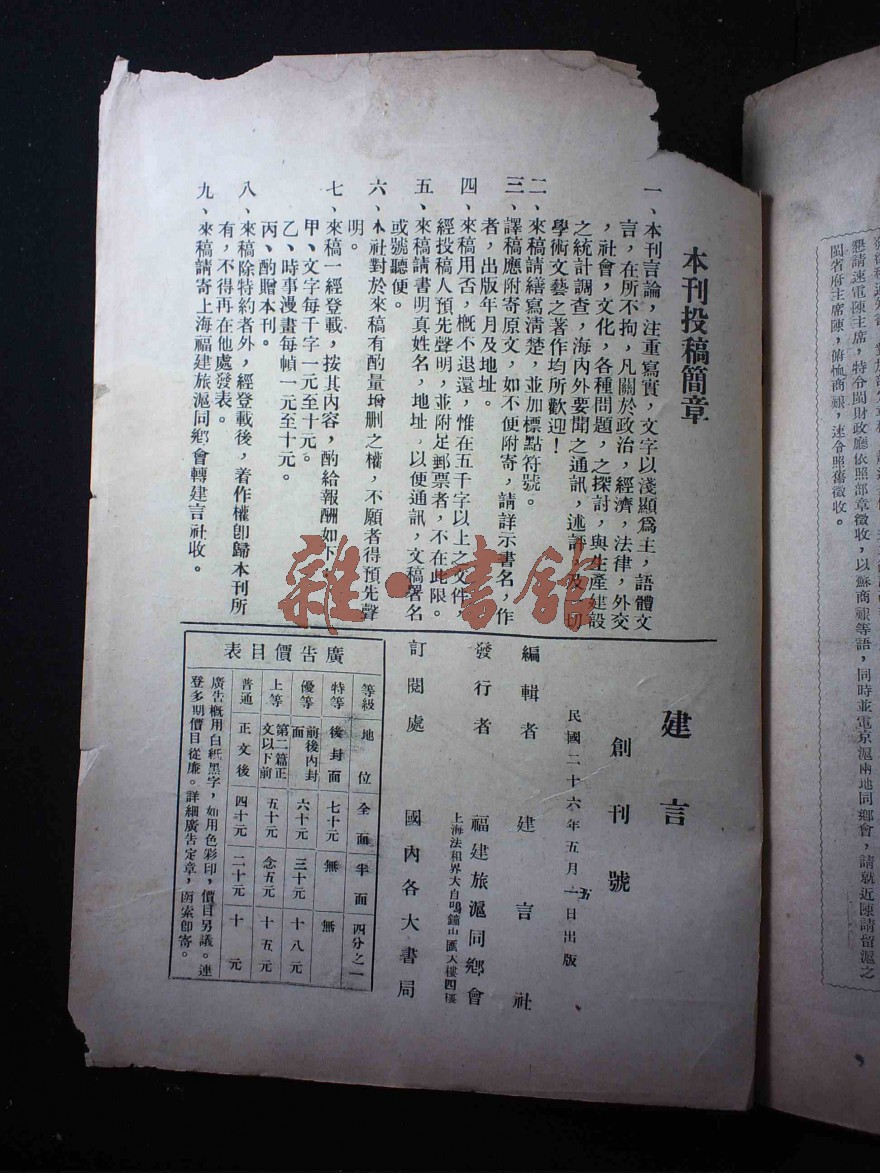 本刊投稿簡章
一、本刊言論，注重寫實，文字以淺顯爲主，語體文
言，在所不拘，凡關於政治，經濟，法律，外交
，社會，文化，各種問題，之探討，與生產建設
之統計調查，海內外要聞之通訊，述評，及一切
學術文藝之著作均所歡迎！
二、來稿請繕寫清楚，並加標點符號。
三、譯稿應附寄原文，如不便附寄，請詳示書名，作
者，出版年月及地址。
四、來稿用否，概不退還，惟在五千字以上之文件，
經投稿人預先聲明，並附足郵票者，不在此限。
五、來稿請書明真姓名，地址，以便通訊，文稿署名
或號聽便。
六、本社對於來稿有酌量增刪之權，不願者得預先聲
明。
七、來稿一經登載，按其內容，酌給報酬如下
甲、文字每千字一元至十元。
乙、時事漫畫每幀一元至十元。
丙、酌贈本刊。
八、來稿除特約者外，經登載後，着作權卽歸本刊所
有，不得再在他處發表。
九、來稿請寄上海福建旅滬同鄉會轉建言社收。
建言
創刊號
民國二十六年五月 日出版
編輯者 建言社
發行者 福建旅滬同鄉會
上海法租界大自鳴鐘山匯大樓四樓
訂閱處 國內各大書局
廣告價目表
等級 地位 全面 半面 四分之一
特等 後封面 七十元 無 無
優等 前後內封面 六十元 三十元 十八元
上等 第二篇正文以下前 五十元 念五元 十五元
普通 正文後 四十元 二十元 十元
廣告概用白紙黑字，如用色彩印，價目另議。連
登多期價目從廉。詳細廣告定章，函索卽寄。
懇請速電陳主席，特令閩財政廳依照部章徵收，以蘇商艱等語，同時並電京滬兩地同鄉會，請就近陳請留滬之
閩省府主席陳，俯恤商艱，速令照舊徵收。
雜·書館